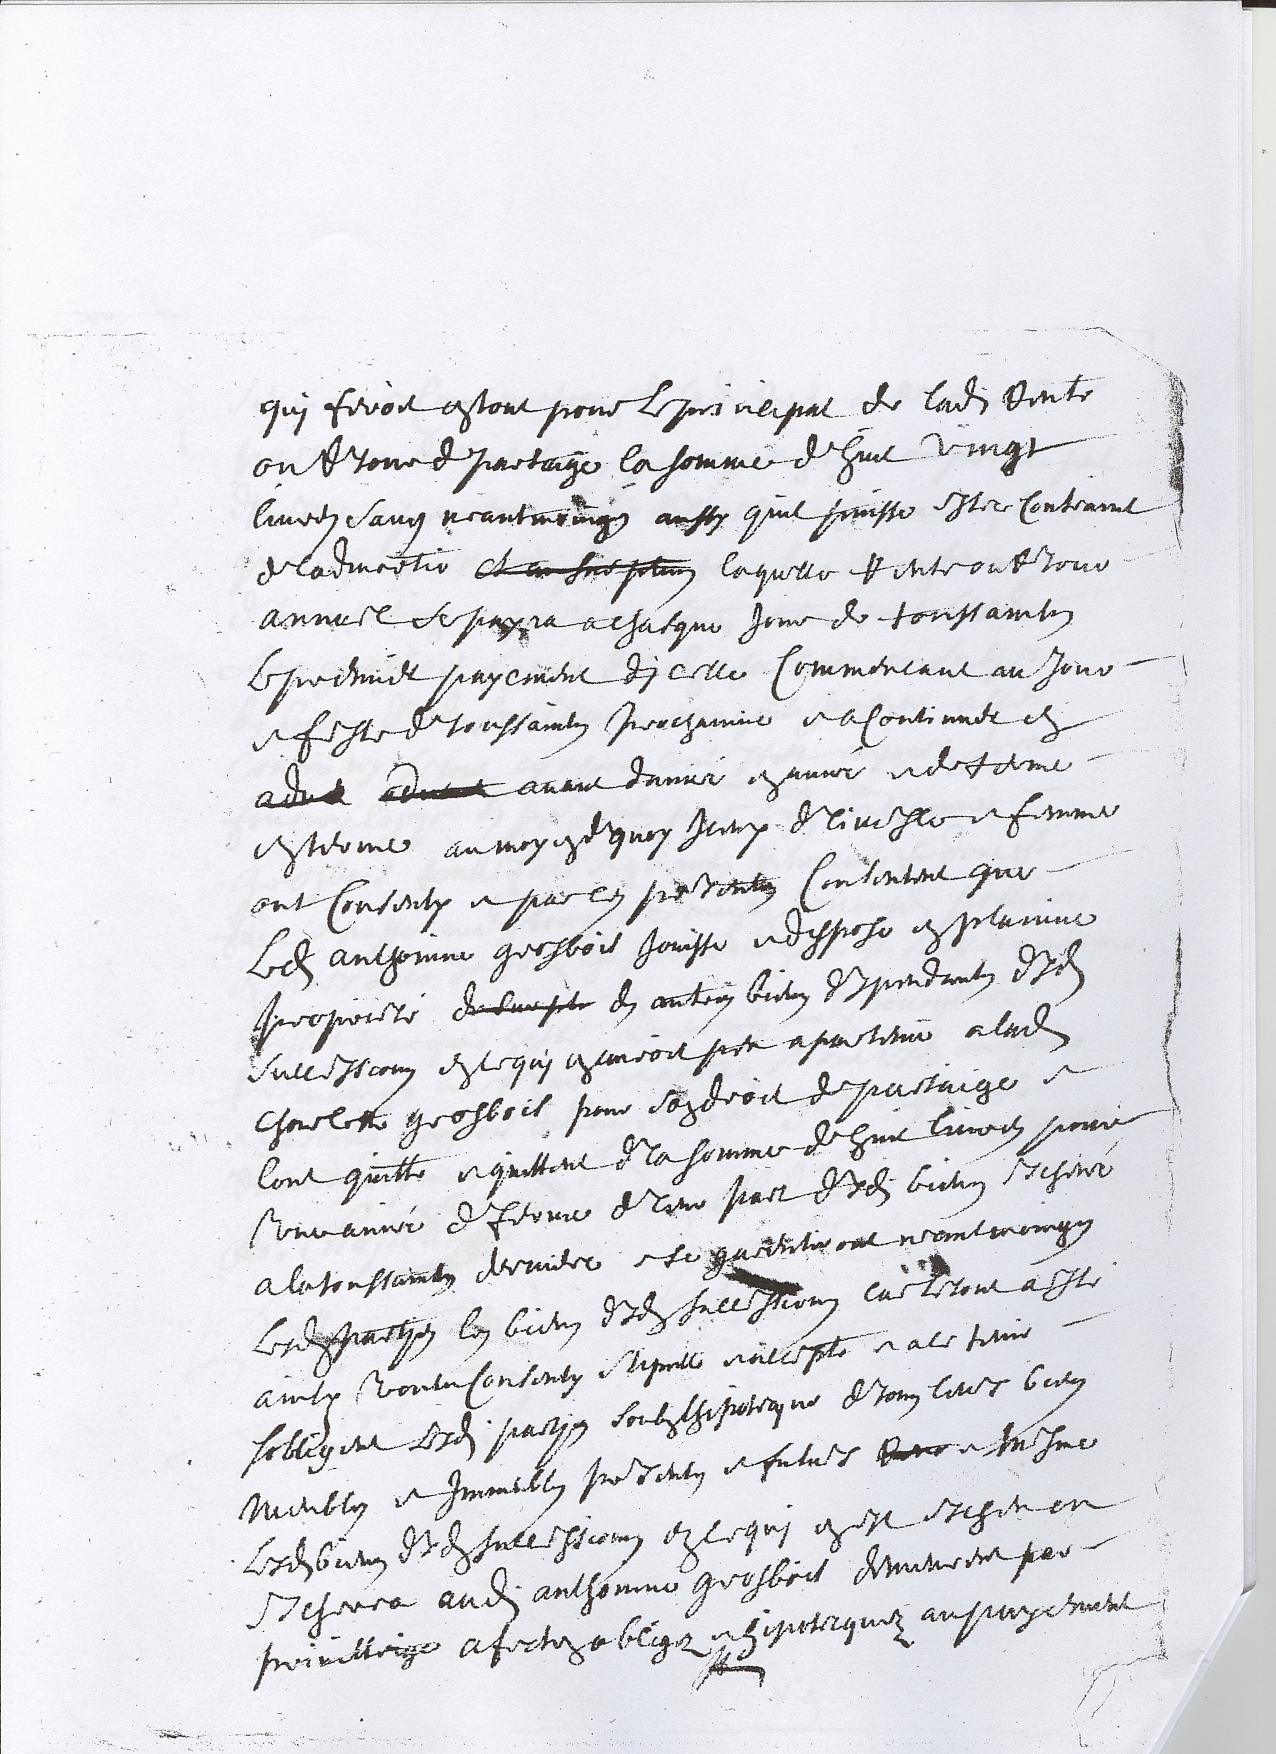 qui seroit en tout pour le principal de lad rente
ou retour de partaige la somme de huit vingt
livres sans neantmoings qu'il puisse estre contraint
de ladmortir laquelle rente ou retour
annuel se payra a chasque jour de toussaintz
le premier payement dicelle commencant au jour
et feste de toussaintz prochaine et a continuer
avant dannee en annee et de terme
en terme au moyen de quoy iceux et femme
ont consenty et par ces presentes consentent que
led anthoinne grosbois jouisse et dispose en plainne
propriete des autres biens dependants desd
successions en ce qui en auroit peu apartenir a lad
Charlotte grosbois pour son droit de partaige et
lont quitte et quittent de la somme de huit livres pour
une annee de ferme de leur part desd biens escheue
a la toussaintz dernier et se garentiront neantmoings
lesd partyes les biens desd successions car le tout a este
ainsy voulu consenty stipulle et accepte et a ce tenir
sobligent lesd partyes soubz lhipotecque de tous leurs biens
meubles et immeubles presents et futurs et mesme
lesd biens desd successions en ce qui en est escheu ou
eschera aud anthoinne grosbois demeurent par
privilleige afectez obligez et hipotecquez au payement